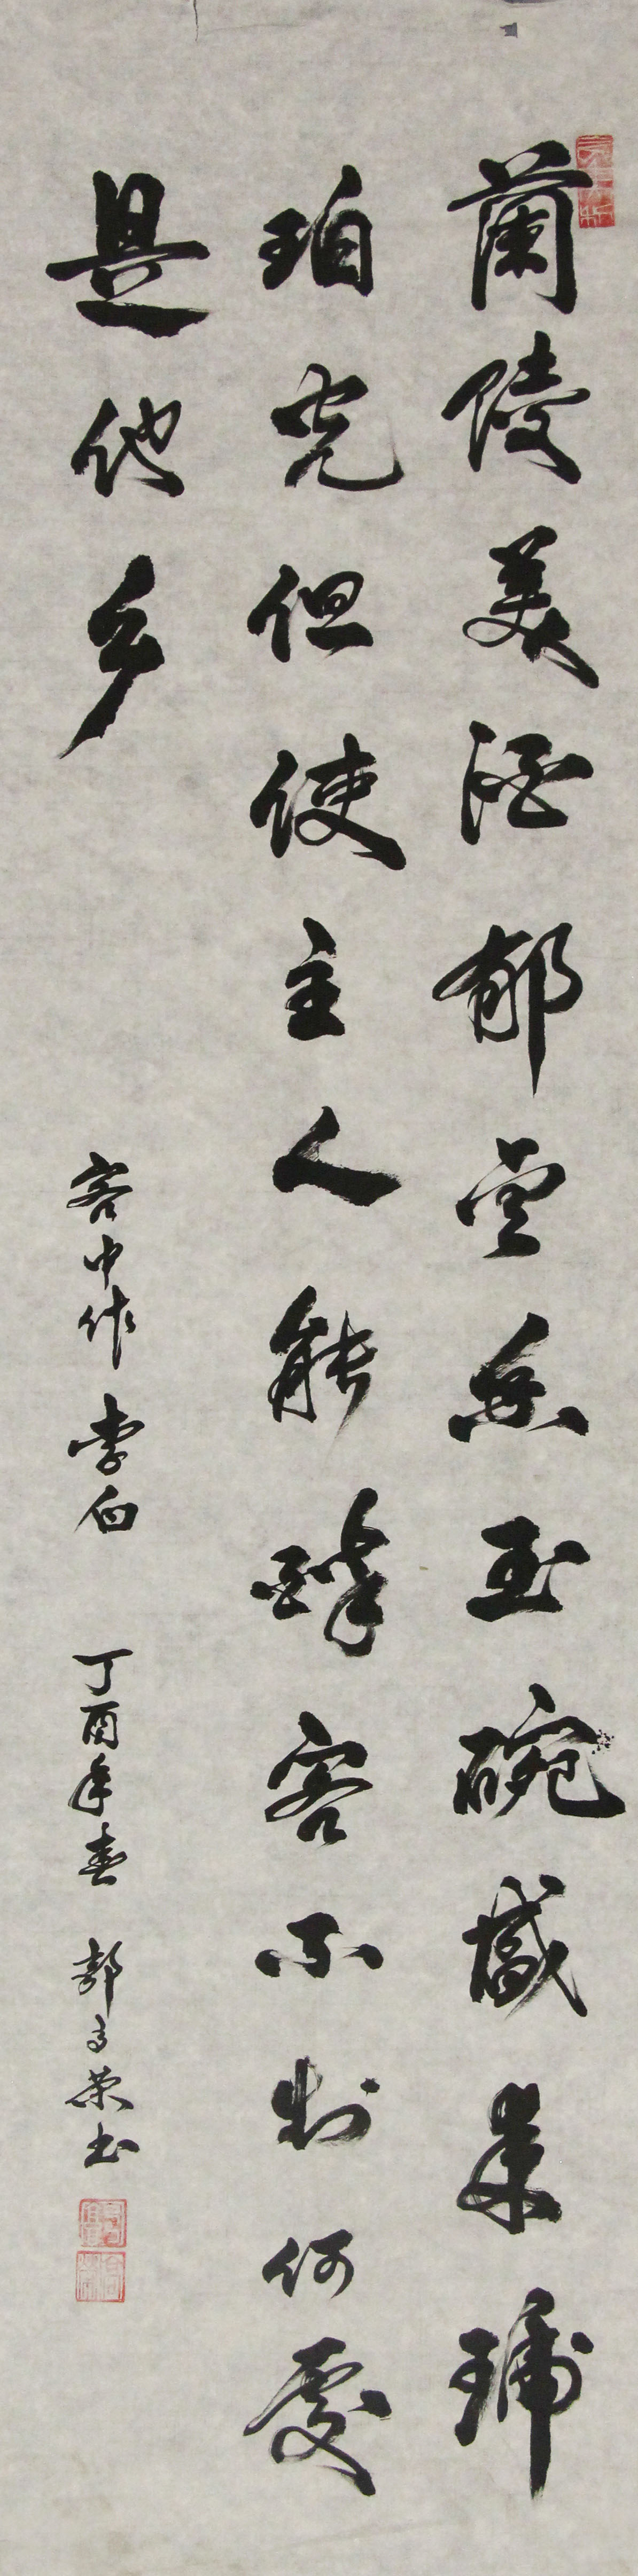 蘭陵美酒郁金香玉碗盛来琥
珀光但使主人能醉客不知何處
是他乡
客中作 李白 丁酉年春 郝高荣书